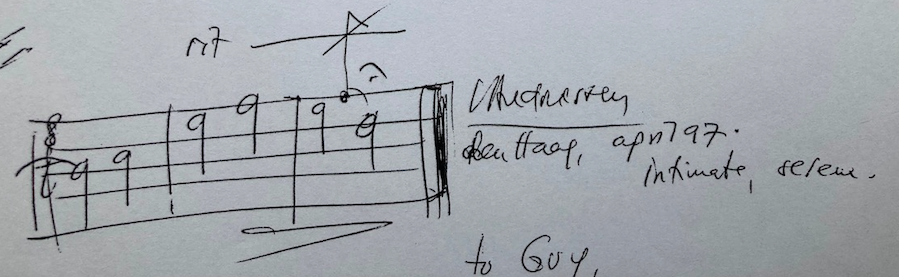 m7
Andriessen
Den Haag, april 97.
intimate, serene.
to Guy,